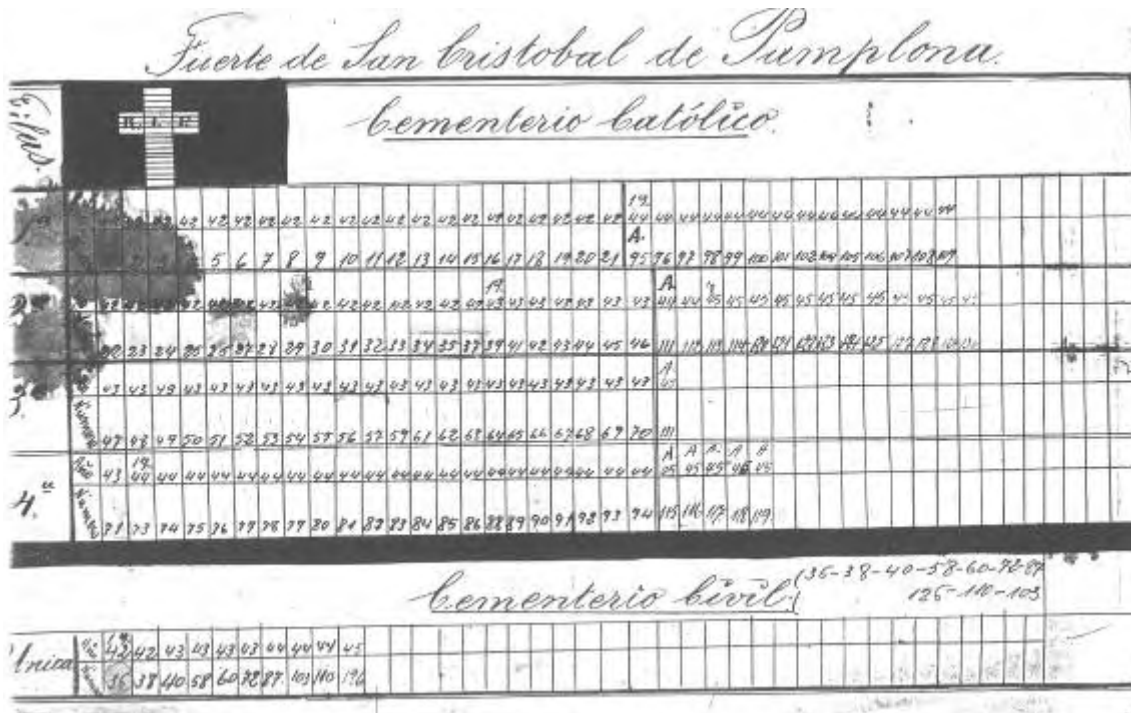 Fuerte de San Cristobal de Pamplona.
Filas.
R. I. P.
Cementerio Católico.
19
42 42 42 42 42 42 42 42 42 42 42 42 42 42 42 42 42 44 44 44 44 44 44 44 44 44 44 44 44 44
A.
5 6 7 8 9 10 11 12 13 14 15 16 17 18 19 20 21 95 96 97 98 99 100 101 102 104 105 106 107 108 109
2ª
19 A.
42 42 42 42 42 43 43 43 43 43 43 43 44 44 45 45 45 45 45 45 45 45
22 23 24 25 26 27 28 29 30 31 32 33 34 35 37 39 41 42 43 44 45 46 111 112 113 114 120 121 122 123 124 125 127 128
3ª
A.
Año 43 43 43 43 43 43 43 43 43 43 43 43 43 43 43 43 43 43 43 43 43 43 45
Número 47 48 49 50 51 52 53 54 55 56 57 59 61 62 63 64 65 66 67 68 69 70
4.ª
19 A A A A A
Año 43 44 44 44 44 44 44 44 44 44 44 44 44 44 44 44 44 44 44 44 44 44 45 45 45 45 45
Número 71 73 74 75 76 77 78 79 80 81 82 83 84 85 86 88 89 90 91 92 93 94 115 116 117 118 119
Cementerio Civil (36-38-40-58-60-72-87
126-110-103
Unica
Año 42 42 43 43 43 43 44 44 44 45
36 38 40 58 60 72 87 103 110 126